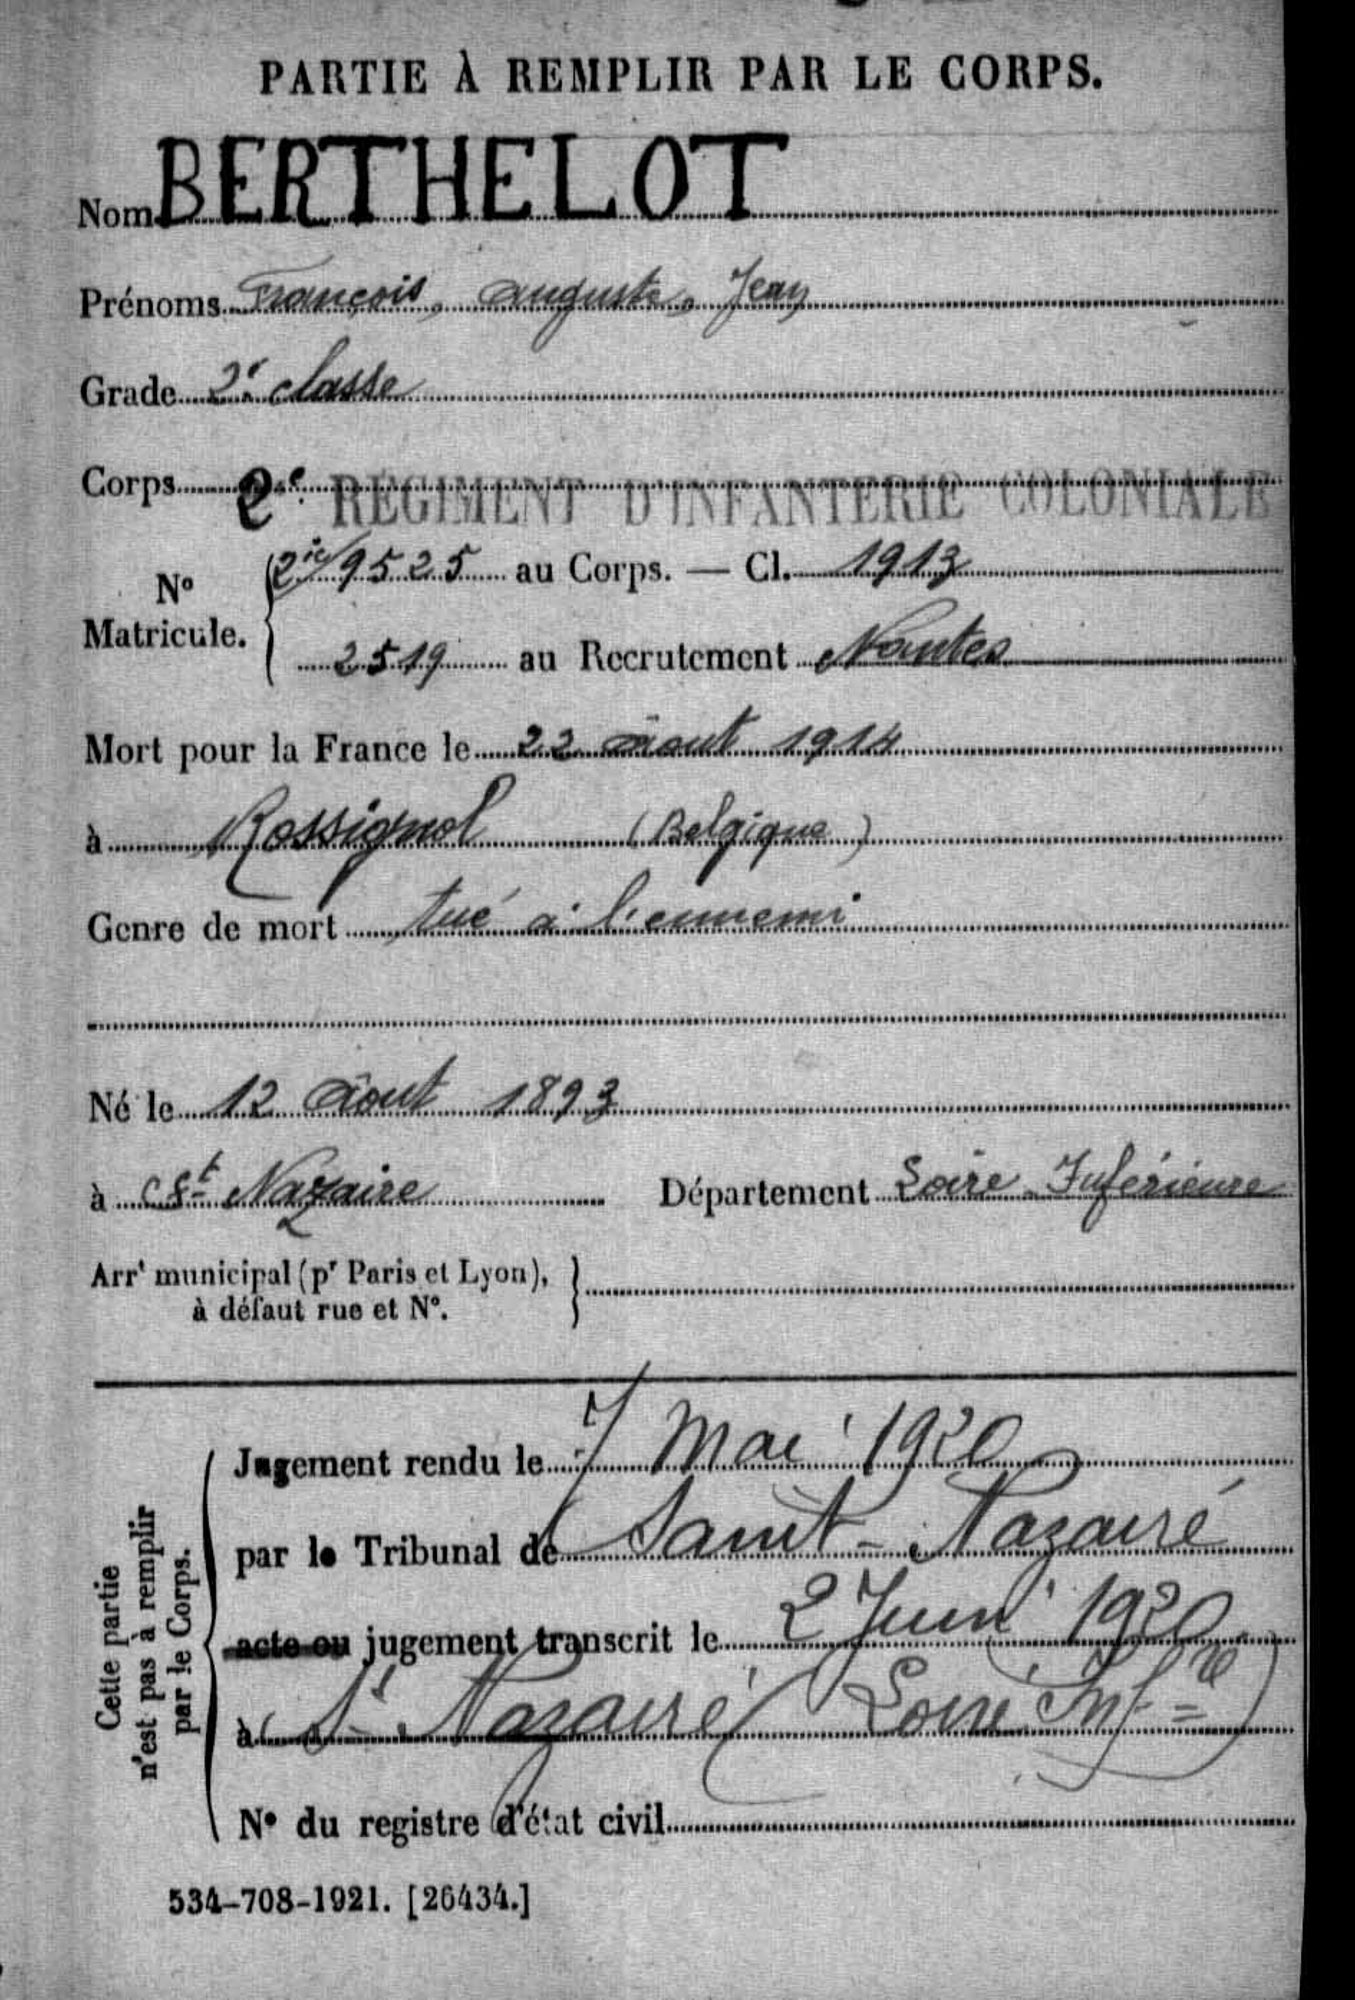 PARTIE À REMPLIR PAR LE CORPS.
Nom BERTHELOT
Prénoms François, auguste, Jean
Grade 2e classe
Corps 2e RÉGIMENT D'INFANTERIE COLONIALE
No Matricule. { 2ic/9525 au Corps. — Cl. 1913
2519 au Recrutement Nantes
Mort pour la France le 22 août 1914
à Rossignol (Belgique)
Genre de mort tué à l'ennemi
Né le 12 août 1893
à St Nazaire Département Loire Inférieure
Arrt municipal (pr Paris et Lyon), }
à défaut rue et No.
Cette partie
n'est pas à remplir
par le Corps.
Jugement rendu le 7 Mai 1920
par le Tribunal de Saint-Nazaire
acte ou jugement transcrit le 2 Juin 1920
à St Nazaire (Loire Infre)
No du registre d'état civil
534-708-1921. [26434.]